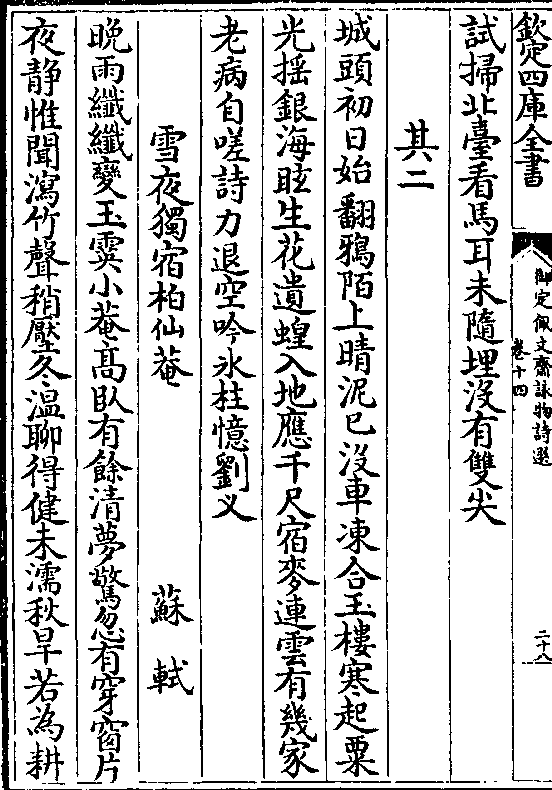 欽定四庫全書
御定佩文齋詠物詩選
卷十四
二十八
試掃北臺看馬耳未隨埋沒有雙尖
其二
城頭初日始翻鴉陌上晴泥已沒車凍合玉樓寒起粟
光揺銀海眩生花遺蝗入地應千尺宿麥連雲有幾家
老病自嗟詩力退空吟氷柱憶劉义
雪夜獨宿柏仙菴 蘇軾
晩雨纎纎變玉霙小菴髙臥有餘清夢驚忽有穿窗片
夜静惟聞瀉竹聲稍壓冬溫聊得健未濡秋旱若為耕